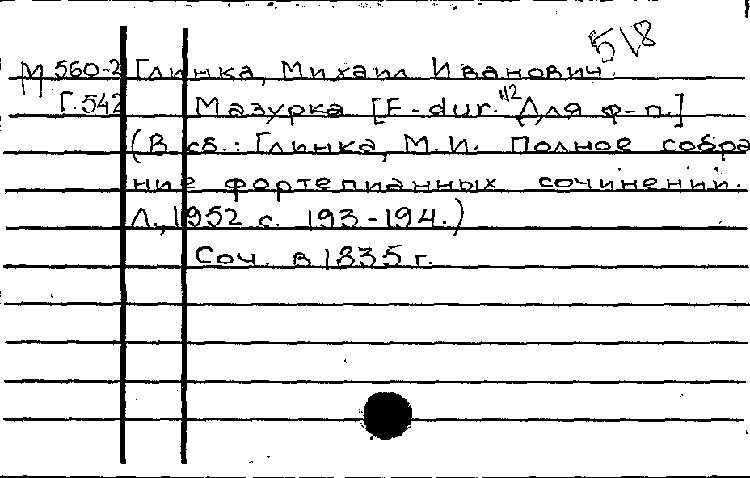 518
М 560-2 Глинка, Михаил Иванович.
Г.542 Мазурка [F-dur. Для ф-п.]
(В сб.: Глинка, М.И. Полное собра
ние фортепианных сочинений.
Л., 1952 с. 193-194.)
Соч. в 1835 г.